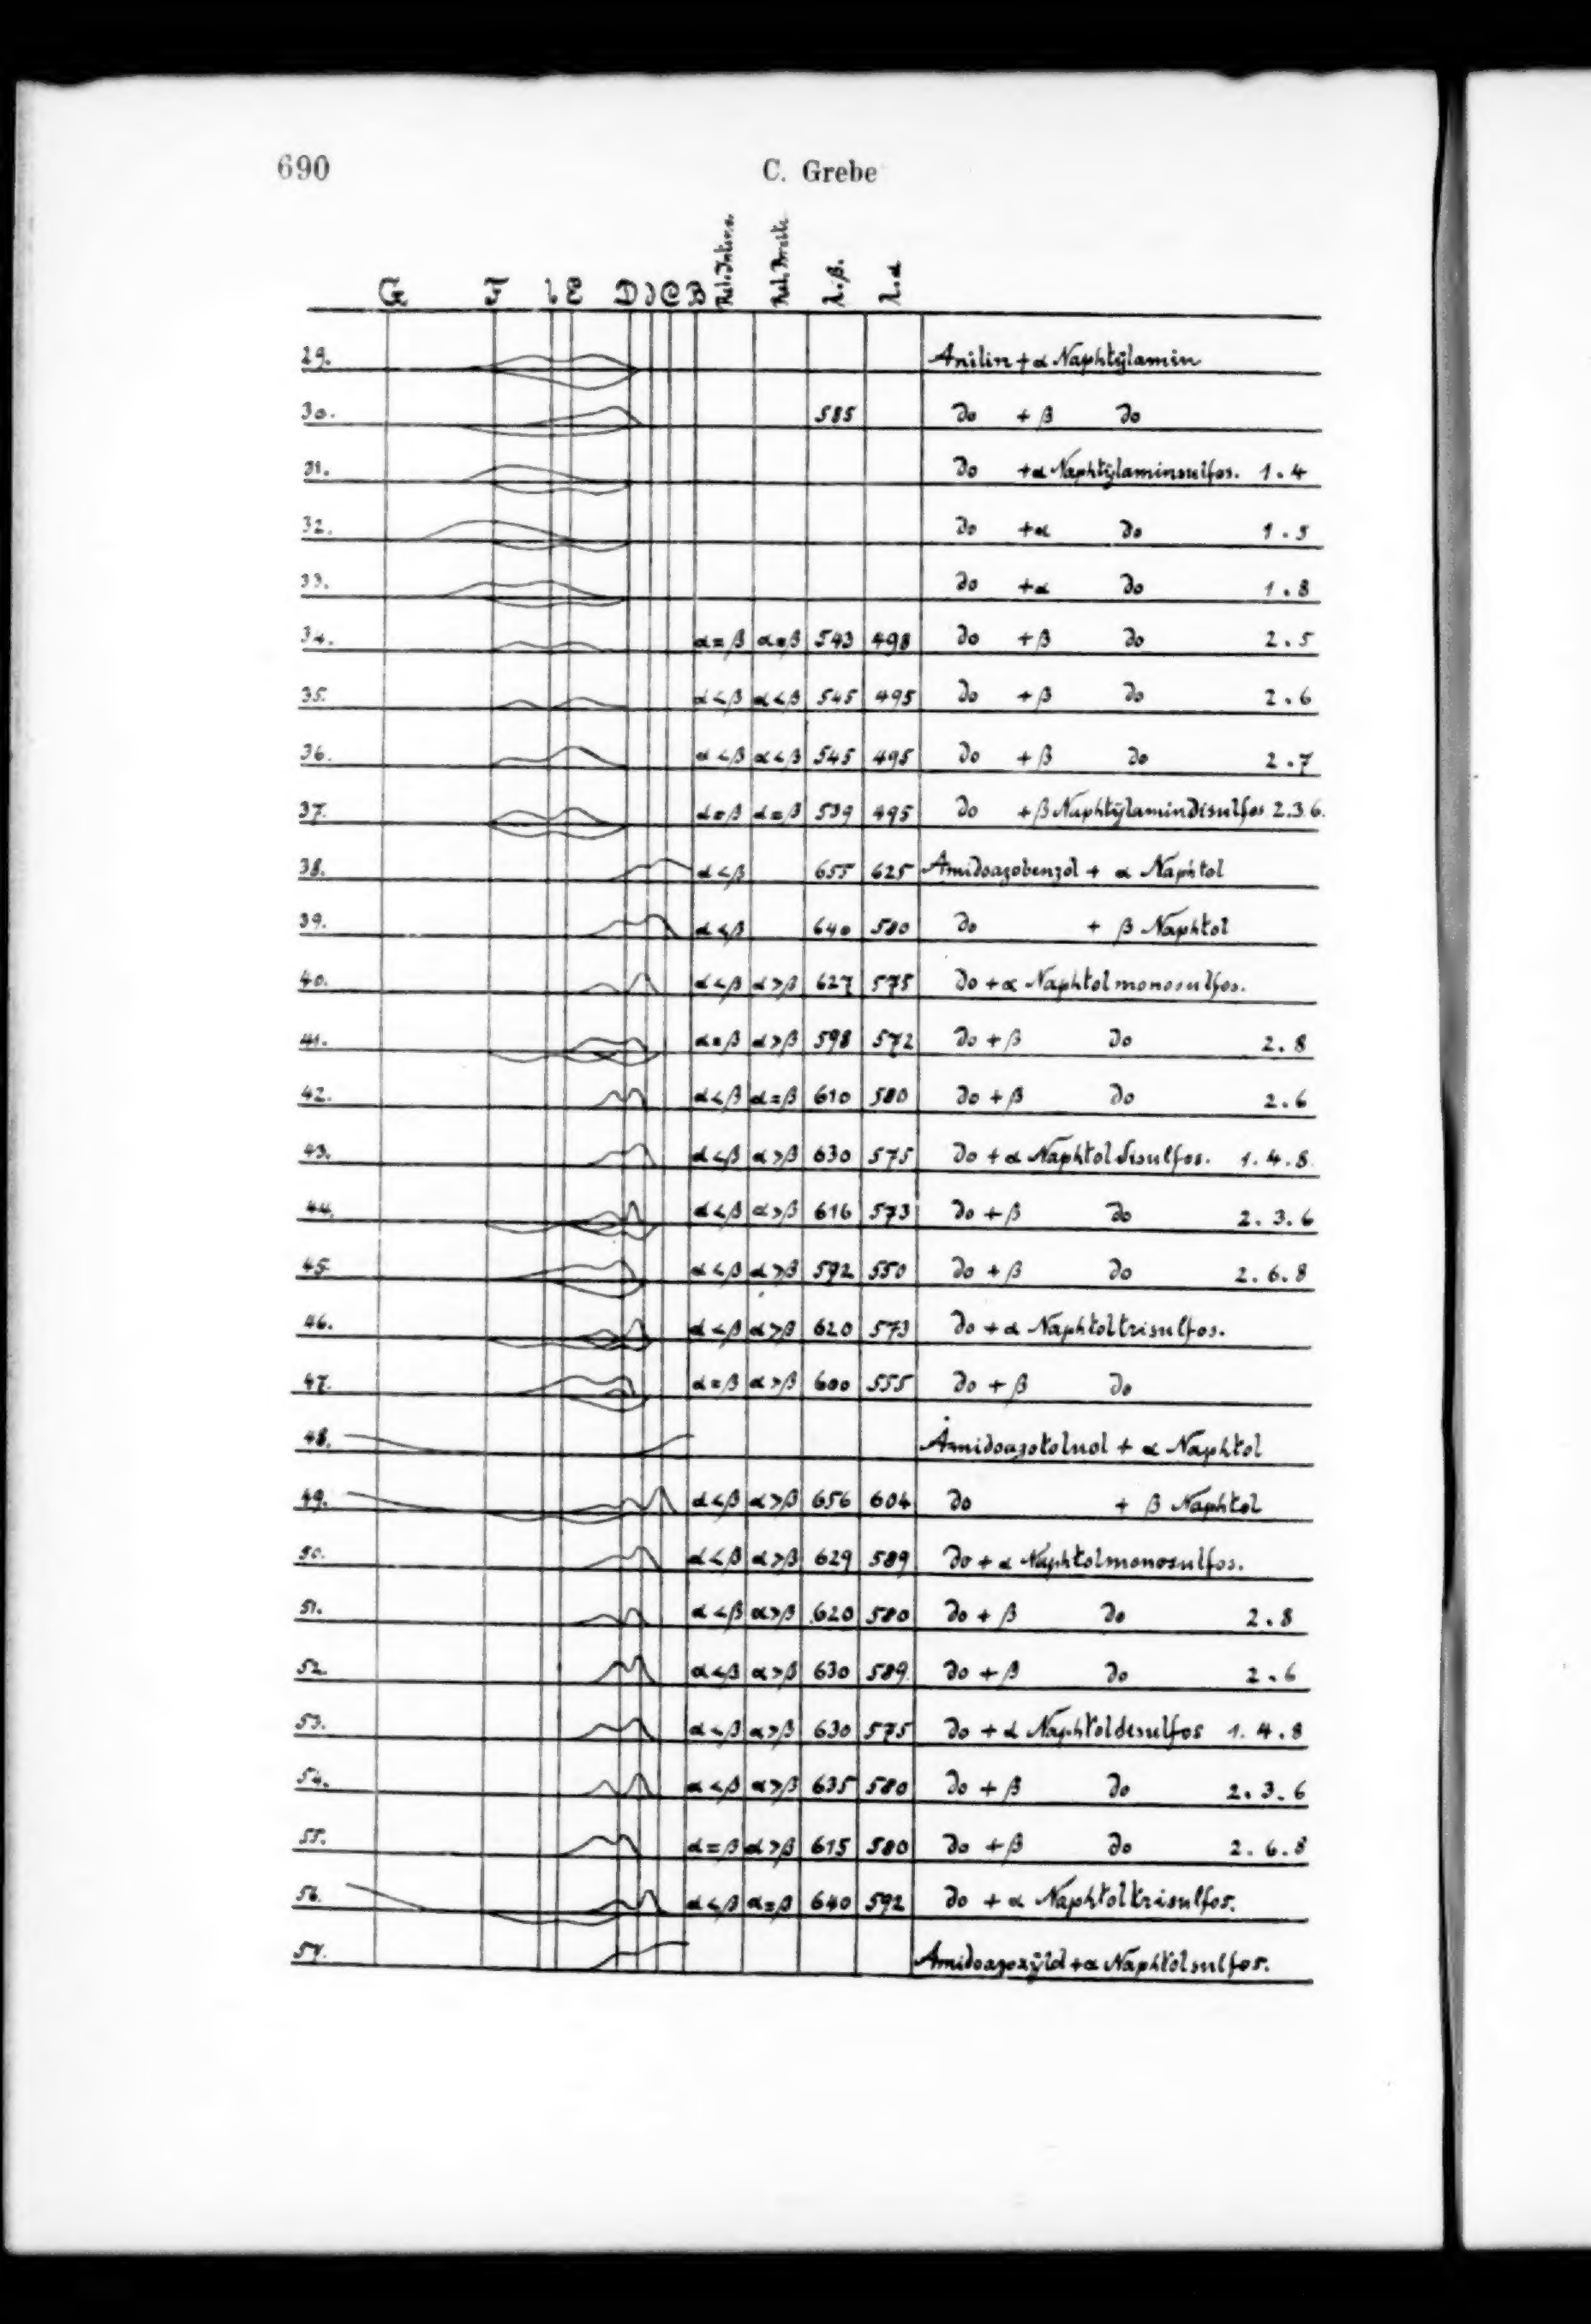 690 C. Grebe
G F b E D C B Rel. Intens. Rel. Breite λ.β. λ.α
29. Anilin + α Naphtÿlamin
30. 585 do + β do
31. do +α Naphtÿlaminsulfos. 1.4
32. do +α do 1.5
33. do +α do 1.8
34. α=β α=β 543 498 do +β do 2.5
35. α<β α<β 545 495 do +β do 2.6
36. α<β α<β 545 495 do +β do 2.7
37. α=β α=β 539 495 do +β Naphtÿlamindisulfos 2.3.6.
38. α<β 655 625 Amidoazobenzol + α Naphtol
39. α<β 640 580 do + β Naphtol
40. α<β α>β 627 575 do +α Naphtolmonosulfos.
41. α=β α>β 598 572 do +β do 2.8
42. α<β α=β 610 580 do +β do 2.6
43. α<β α>β 630 575 do +α Naphtoldisulfos. 1.4.8.
44. α<β α>β 616 573 do +β do 2.3.6
45. α<β α>β 592 550 do +β do 2.6.8
46. α<β α>β 620 573 do +α Naphtoltrisulfos.
47. α=β α>β 600 555 do +β do
48. Amidoazotoluol + α Naphtol
49. α<β α>β 656 604 do + β Naphtol
50. α<β α>β 629 589 do +α Naphtolmonosulfos.
51. α<β α>β 620 580 do +β do 2.8
52. α<β α>β 630 589 do +β do 2.6
53. α<β α>β 630 575 do +α Naphtoldisulfos 1.4.8
54. α<β α>β 635 580 do +β do 2.3.6
55. α=β α>β 615 580 do +β do 2.6.8
56. α<β α=β 640 592 do +α Naphtoltrisulfos.
57. Amidoazoxÿlol +α Naphtolsulfos.